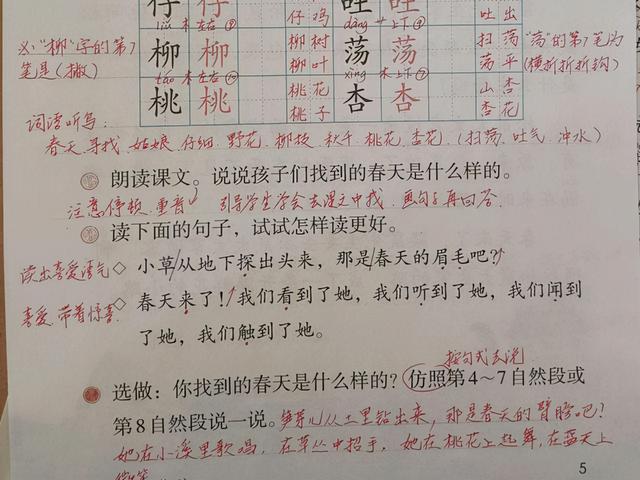 仔 仔 仔 鸡 吐 吐 出
liǔ 木 左右 ⑨ dàng 艹 上下 ⑨
"柳"字的第7笔是(撇)
柳 柳 柳 树 柳 叶 荡 荡 扫 荡 荡 平
"荡"的第7笔为(横折折折钩)
táo 木 左右 ⑩ xìng 木 上下 ⑦
桃 桃 桃 花 桃 子 杏 杏 山 杏 杏 花
词语听写:
春天 寻找 姑娘 仔细 野花 柳枝 秋千 桃花 杏花 (扫荡 吐气 冲水)
朗读课文。说说孩子们找到的春天是什么样的。
注意停顿 重音 引导学生学会去课文中找 画句子再回答.
读下面的句子,试试怎样读更好。
读出喜爱语气
◇ 小草从地下探出头来,那是春天的眉毛吧?
喜爱、带着惊喜
◇ 春天来了!我们看到了她,我们听到了她,我们闻到
了她,我们触到了她。
按句式去说
选做:你找到的春天是什么样的?仿照第4~7自然段或
第8自然段说一说。笋芽儿从土里钻出来,那是春天的臂膀吧?
她在小溪里歌唱,在草丛中招手,她在桃花上起舞,在蓝天上
5